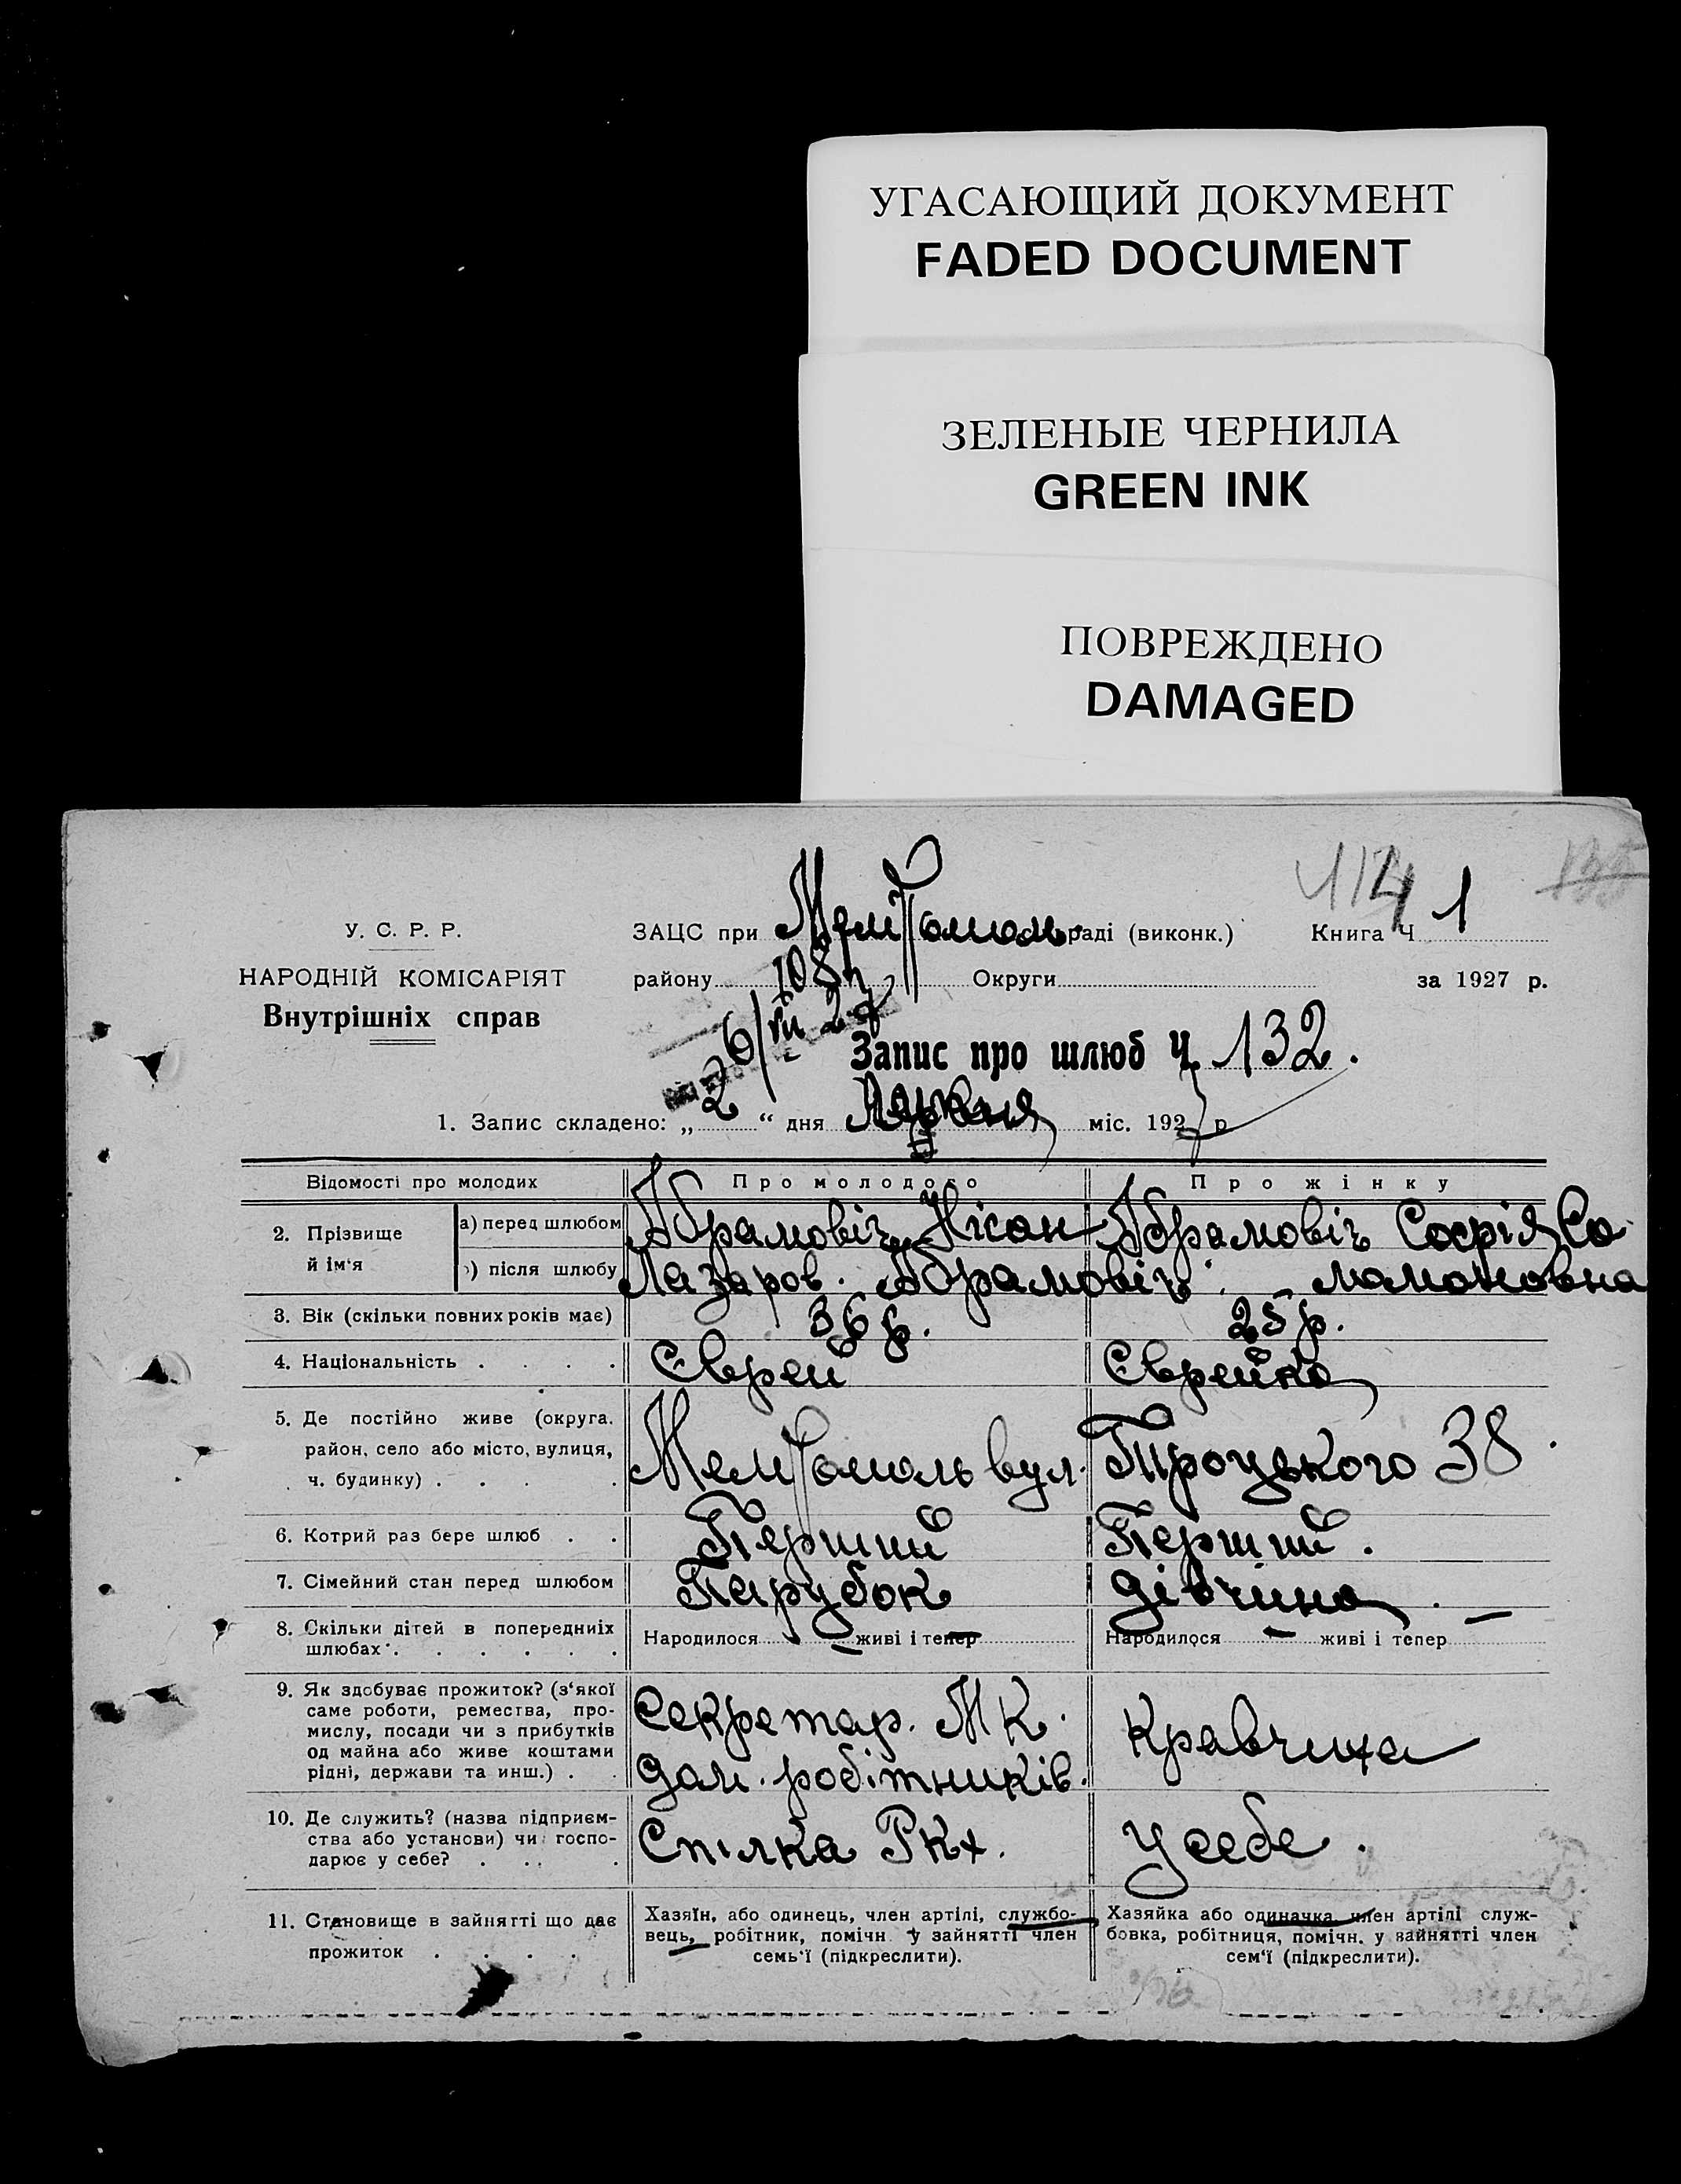 УГАСАЮЩИЙ ДОКУМЕНТ
FADED DOCUMENT
ЗЕЛЕНЫЕ ЧЕРНИЛА
GREEN INK
ПОВРЕЖДЕНО
DAMAGED
У. С. Р. Р.
НАРОДНІЙ КОМІСАРІЯТ
Внутрішніх справ
ЗАЦС при Мелітополь раді (виконк.) Книга Ч 1
району Округи за 1927 р.
Запис про шлюб Ч. 132.
1. Запис складено: „ 2 “ дня Червня міс. 1927 р
Відомості про молодих Про молодого Про жінку
2. Прізвище й ім‘я а) перед шлюбом Абрамовіч Нісон Абрамовіч Софія Со
після шлюбу Лазаров. Абрамовіч. ломоновна
3. Вік (скільки повних років має) 36 р. 25 р.
4. Національність Єврей Єврейка
5. Де постійно живе (округа.
район, село або місто, вулиця,
ч. будинку) Мелітополь вул. Троцького 38.
6. Котрий раз бере шлюб Перший Перший.
7. Сімейний стан перед шлюбом Парубок дівчина.
8. Скільки дітей в попередниіх
шлюбах Народилося — живі і тепер — Народилося — живі і тепер —
9. Як здобуває прожиток? (з‘якої
саме роботи, ремества, про-
мислу, посади чи з прибутків
од майна або живе коштами
рідні, держави та инш.)
Секретар. МК.
дом. робітників.
Кравчиха
10. Де служить? (назва підприєм-
ства або установи) чи госпо-
дарює у себе?
Спілка РКХ.
У себе.
11. Становище в зайнятті що дає
прожиток
Хазяїн, або одинець, член артілі, службо-
вець, робітник, помічн. у зайнятті член
семь‘ї (підкреслити).
Хазяйка або одиначка член артілі служ-
бовка, робітниця, помічн. у зайнятті член
сем‘ї (підкреслити).